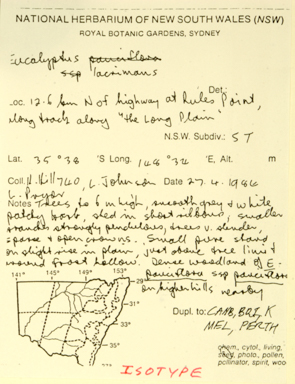 NATIONAL HERBARIUM OF NEW SOUTH WALES (NSW)
ROYAL BOTANIC GARDENS, SYDNEY
Eucalyptus pauciflora
ssp lacrimans
Det.
Loc. 12.6 km N of highway at Rules Point,
along track along "the Long Plain"
N.S.W. Subdiv.: ST
Lat. 35° 38 'S Long. 148° 34 'E, Alt. m
Coll. K. Hill 740, L. Johnson Date 27.4.1984
L. Pryor
Notes Trees to 6 m high, smooth grey & white
patchy bark, shed in short ribbons, smaller
branches strongly pendulous, trees v. slender,
sparse & open crowns. Small pure stand
on slight rise in plain, just above tree limit
around frost hollow. Dense woodland of E.
pauciflora ssp pauciflora
on higher hills nearby
141° 145° 149° 153°
29°
33°
35°
Dupl. to: CANB, BRI, K
MEL, PERTH
chem, cytol, living,
photo, pollen,
pollinator, spirit, woo
ISOTYPE